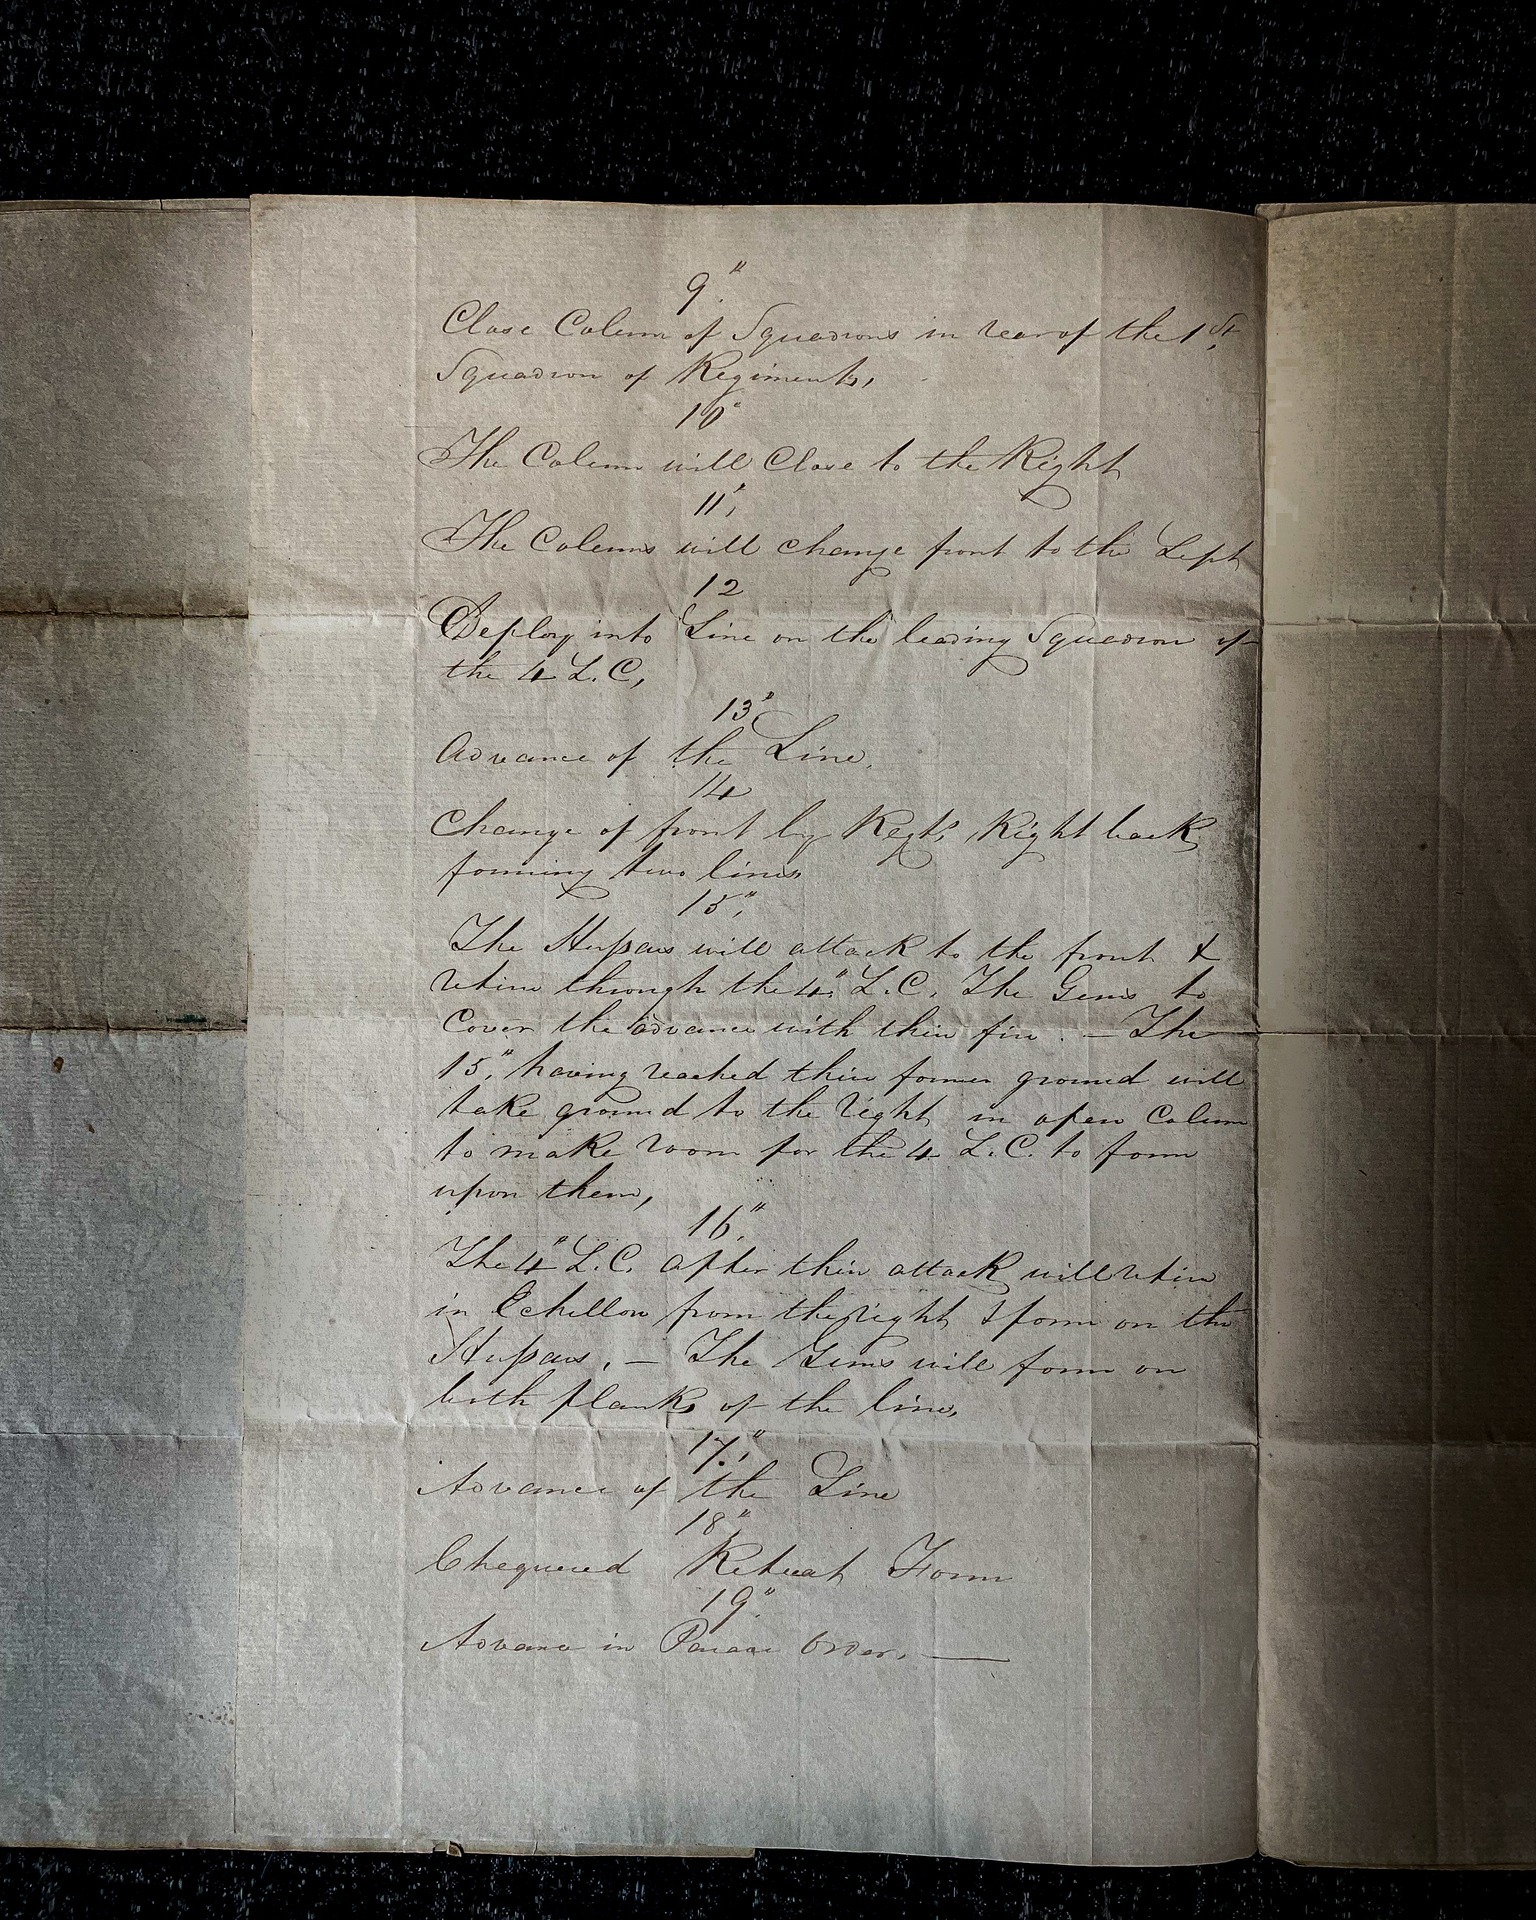 9."
Close Column of Squadrons in rear of the 1st,
Squadron of Regiments,
10"
The Column will Close to the Right
11,"
The Columns will change front to the Left
12
Deploy into Line on the leading Squadron of
the 4 L.C,
13"
Advance of the Line,
14
Change of front by Regts, Right back
forming two lines
15,"
The Hussars will attack to the front &
retire through the 4," L.C. The Guns to
Cover the advance with their fire. — The
15," having reached their former ground will
take ground to the right in open Column
to make room for the 4 L.C. to form
upon them,
16,"
The 4" L.C. after their attack will retire
in Echellon from the right & form on the
Hussars, — The Guns will form on
both flanks of the line,
17,"
Advance of the Line
18,"
Chequered Retreat Form
19."
Advance in Parade Order, —